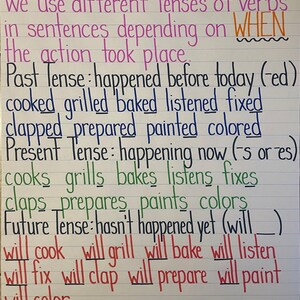 We use different tenses of verbs
in sentences depending on WHEN
the action took place.
Past Tense: happened before today (-ed)
cooked grilled baked listened fixed
clapped prepared painted colored
Present Tense: happening now (-s or -es)
cooks grills bakes listens fixes
claps prepares paints colors
Future Tense: hasn't happened yet (will __)
will cook will grill will bake will listen
will fix will clap will prepare will paint
will color